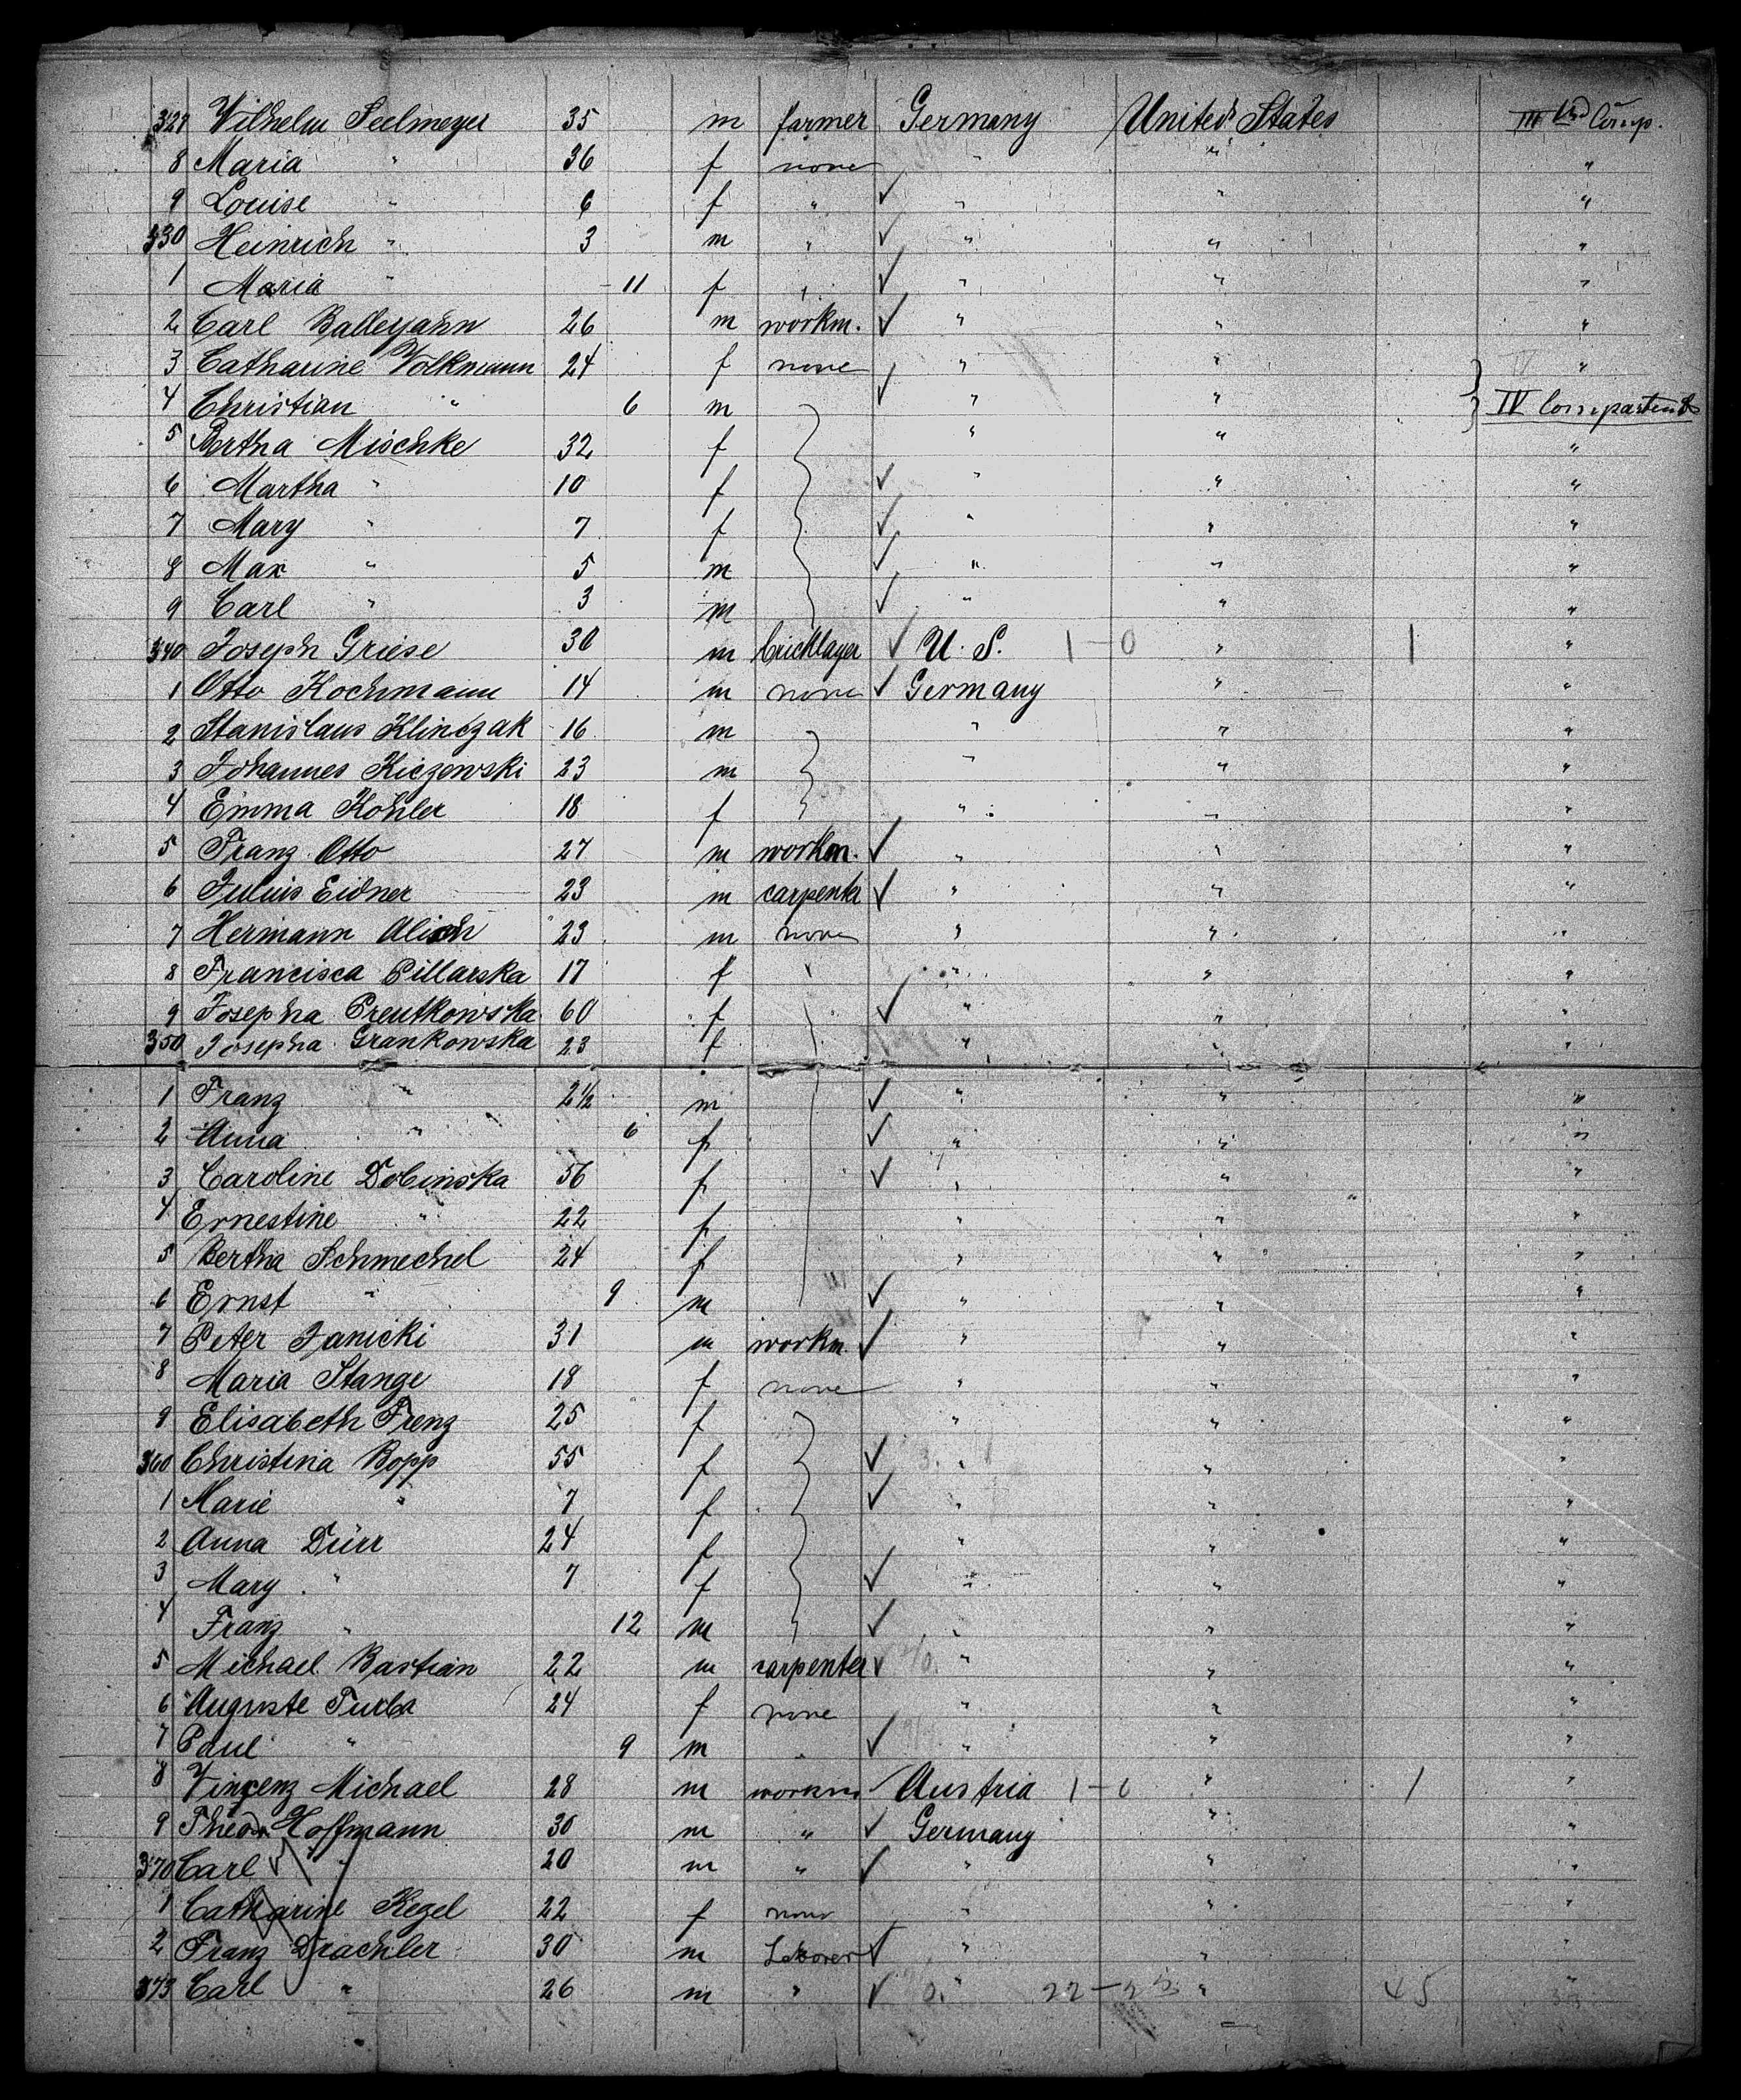 327 Wilhelm Seelmeyer 35 m farmer Germany United States III Comp.
8 Maria " 36 f none " " "
9 Louise " 6 f " ✓ " " "
330 Heinrich " 3 m " ✓ " " "
1 Maria " 11 f " ✓ " " "
2 Carl 26 m workm. ✓ " " "
3 Catharine Volkmann 24 f none " " IV "
4 Christian " 6 m ✓ " " } IV Compartent
5 Bertha Mischke 32 f " " "
6 Martha " 10 f ✓ " " "
7 Mary " 7 f ✓ " " "
8 Max " 5 m ✓ " " "
9 Carl " 3 m ✓ " " "
340 Joseph Griese 30 m bricklayer ✓ U. S. 1-0 " 1 "
1 Otto Kochmann 14 m none ✓ Germany " "
2 Stanislaus Klinczak 16 m " " "
3 Johannes Kiczewski 23 m " " "
4 Emma Kohler 18 f " " "
5 Franz Otto 27 m workm. ✓ " " "
6 Julius Eidner 23 m carpentr ✓ " " "
7 Hermann 23 m none " " "
8 Francisca Pillarska 17 f " " "
9 Josepha Preutkowska 60 f ✓ " " "
350 Josepha Grankowska 23 f " " "
1 Franz " 2½ m ✓ " " "
2 Anna " 6 f ✓ " " "
3 Caroline Dobinska 56 f ✓ " " "
4 Ernestine " 22 f " " "
5 Bertha Schmechel 24 f " " "
6 Ernst " 9 m ✓ " " "
7 Peter Janicki 31 m workm. ✓ " " "
8 Maria Stange 18 f none " " "
9 Elisabeth Frenz 25 f " " "
360 Christina Bopp 55 f ✓ " " "
1 Marie " 7 f ✓ " " "
2 Anna Dürr 24 f " " "
3 Mary " 7 f ✓ " " "
4 Franz " 12 m ✓ " " "
5 Michael Bastian 22 m carpenter ✓ " " "
6 Auguste Turba 24 f none " " "
7 Paul " 9 m " ✓ " " "
8 Vinzenz Michael 28 m workm ✓ Austria 1-0 " 1 "
9 Theodr Hoffmann 30 m " ✓ Germany " "
370 Carl " 20 m " ✓ " " "
1 Catharine Kegel 22 f none " " "
2 Franz Drachler 30 m Laborer ✓ " " "
373 Carl " 26 m " ✓ " 22-23 " 45 "